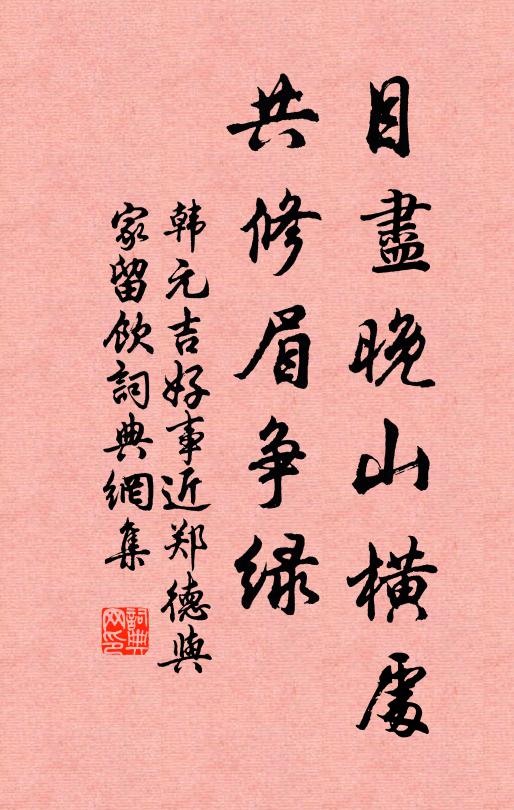 目盡晚山橫處
共修眉争緑
韩元吉好事近郑德與
家留飲詞典網集
詞典網印